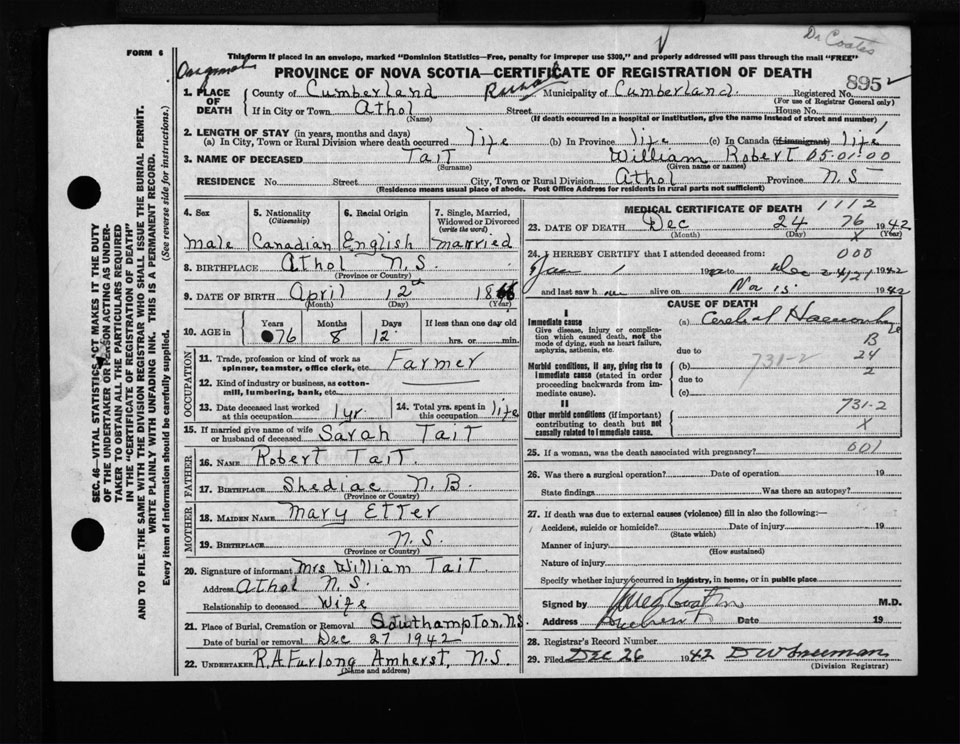 Dr Coates
FORM 6
This form if placed in an envelope, marked "Dominion Statistics—Free, penalty for improper use $300," and properly addressed will pass through the mail "FREE"
PROVINCE OF NOVA SCOTIA—CERTIFICATE OF REGISTRATION OF DEATH
895
1. PLACE OF DEATH
County of Cumberland Municipality of Cumberland. Registered No.
(For use of Registrar General only)
If in City or Town Athol Street House No.
(Name) (If death occurred in a hospital or institution, give the name instead of street and number)
2. LENGTH OF STAY (in years, months and days)
(a) In City, Town or Rural Division where death occurred life (b) In Province life (c) In Canada (if immigrant) life
3. NAME OF DECEASED Tait William Robert 05.01.00
(Surname) (Given name or names)
RESIDENCE No. Street City, Town or Rural Division Athol Province N.S
(Residence means usual place of abode. Post Office Address for residents in rural parts not sufficient)
4. Sex
male
5. Nationality (Citizenship)
Canadian
6. Racial Origin
English
7. Single, Married, Widowed or Divorced (write the word)
married
8. BIRTHPLACE Athol N.S.
(Province or Country)
9. DATE OF BIRTH April 12th 1866
(Month) (Day) (Year)
10. AGE in Years Months Days If less than one day old
76 8 12 hrs. or min.
OCCUPATION
11. Trade, profession or kind of work as spinner, teamster, office clerk, etc. Farmer
12. Kind of industry or business, as cotton-mill, lumbering, bank, etc.
13. Date deceased last worked at this occupation 1yr
14. Total yrs. spent in this occupation life
15. If married give name of wife or husband of deceased Sarah Tait
FATHER
16. NAME Robert Tait.
17. BIRTHPLACE Shediac N.B.
(Province or Country)
MOTHER
18. MAIDEN NAME Mary Etter
19. BIRTHPLACE N.S.
(Province or Country)
20. Signature of informant Mrs William Tait.
Address Athol N.S.
Relationship to deceased Wife
21. Place of Burial, Cremation or Removal Southampton, N.S.
Date of burial or removal Dec 27 1942
22. UNDERTAKER R.A Furlong Amherst, N.S.
(Name and address)
MEDICAL CERTIFICATE OF DEATH 1112
23. DATE OF DEATH Dec 24 76 1942
(Month) (Day) X (Year)
24. I HEREBY CERTIFY that I attended deceased from: 000
Jan 1 Dec 24 1942
and last saw h alive on Nov 15 1942
CAUSE OF DEATH
I
Immediate cause
Give disease, injury or complication which caused death, not the mode of dying, such as heart failure, asphyxia, asthenia, etc.
(a) Cerebral Haemorrhage
B
due to 24
Morbid conditions, if any, giving rise to immediate cause (stated in order proceeding backwards from immediate cause).
(b) 731-2 2
due to
(c)
II
Other morbid conditions (if important) contributing to death but not causally related to immediate cause.
731-2
X
25. If a woman, was the death associated with pregnancy? 001
26. Was there a surgical operation? Date of operation 19
State findings Was there an autopsy?
27. If death was due to external causes (violence) fill in also the following:—
Accident, suicide or homicide? Date of injury 19
(State which)
Manner of injury
(How sustained)
Nature of injury
Specify whether injury occurred in industry, in home, or in public place
Signed by M.D.
Address Date 19
28. Registrar's Record Number
29. Filed Dec 26 1942 D W Freeman
(Division Registrar)
SEC. 46—VITAL STATISTICS ACT MAKES IT THE DUTY
OF THE UNDERTAKER OR PERSON ACTING AS UNDER-
TAKER TO OBTAIN ALL THE PARTICULARS REQUIRED
IN THE "CERTIFICATE OF REGISTRATION OF DEATH"
AND TO FILE THE SAME WITH THE DIVISION REGISTRAR WHO SHALL ISSUE THE BURIAL PERMIT.
WRITE PLAINLY WITH UNFADING INK. THIS IS A PERMANENT RECORD.
Every item of information should be carefully supplied. (See reverse side for instructions.)